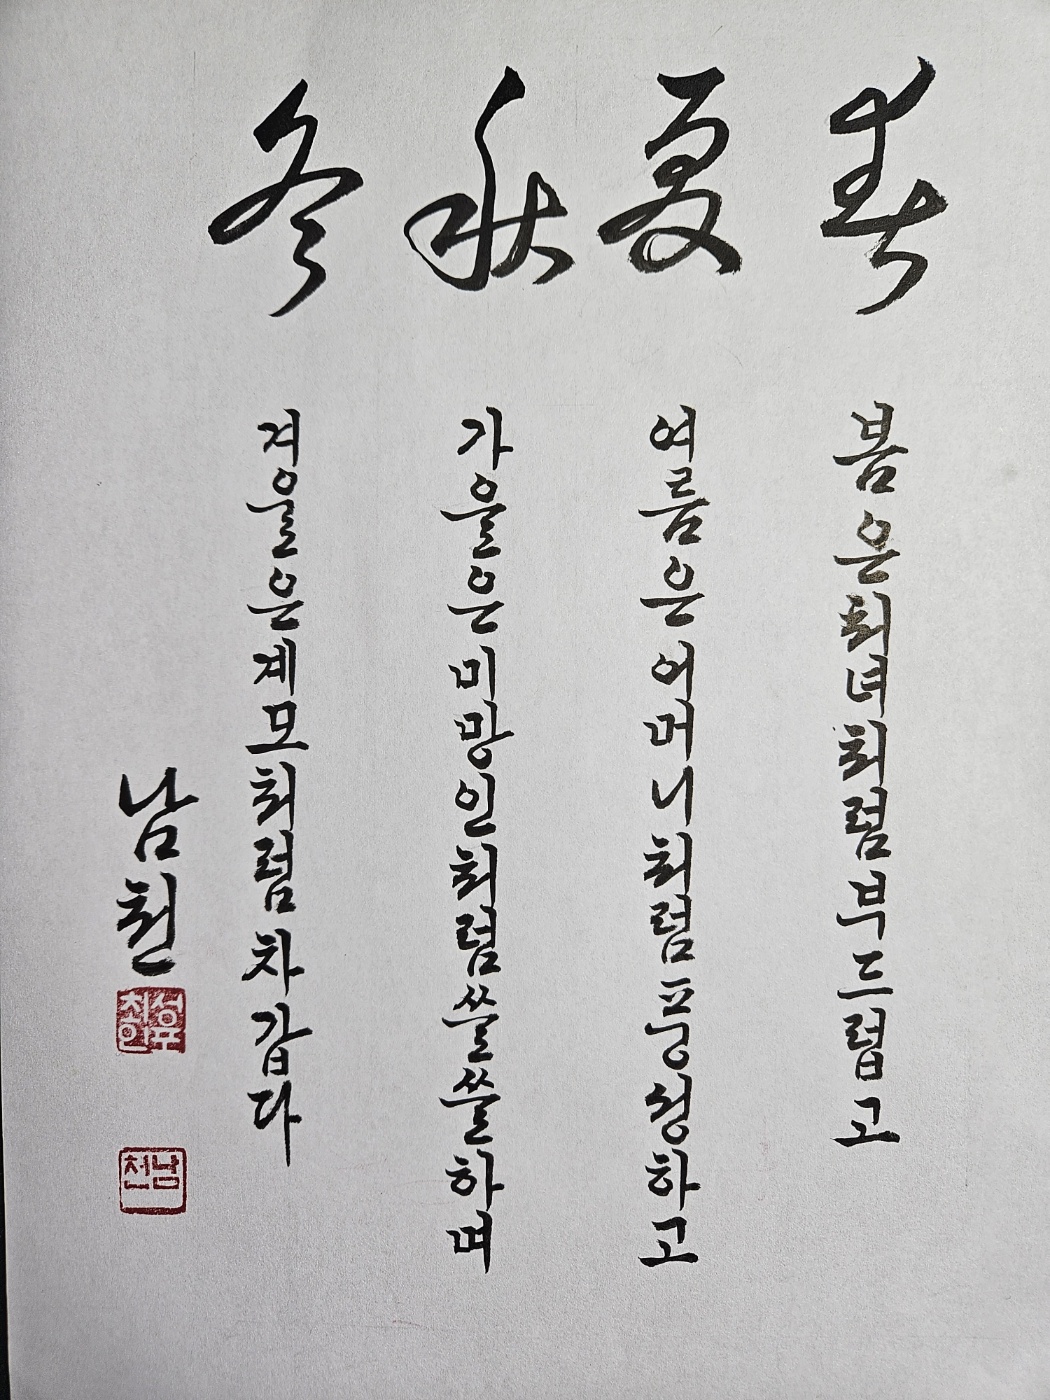 春
봄은처녀처럼부드럽고
夏
여름은어머니처럼풍성하고
秋
가을은미망인처럼쓸쓸하며
冬
겨울은계모처럼차갑다
남천
남천